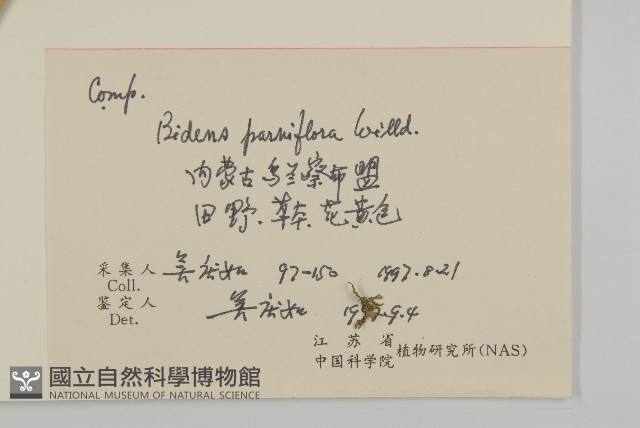 Comp.
Bidens parviflora Willd.
内蒙古乌兰察布盟
田野、草本、花黄色
采集人 姜庆如 97-150 1997.8.21
Coll.
鉴定人 姜庆如 9.4
Det.
江苏省
中国科学院 植物研究所(NAS)
國立自然科學博物館
NATIONAL MUSEUM OF NATURAL SCIENCE